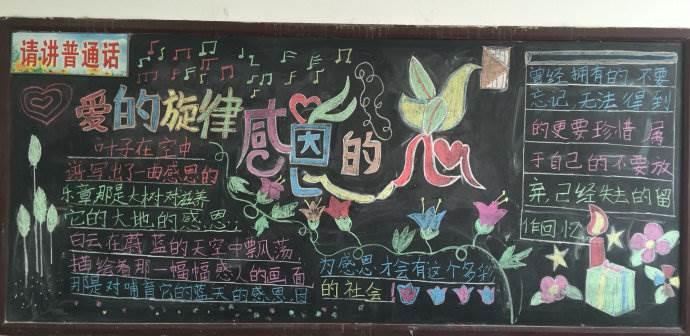 请讲普通话
爱的旋律
感恩的心
叶子在空中
谱写出了一曲感恩的
乐章那是大树对滋养
它的大地的感恩;
白云在蔚蓝的天空中飘荡
描绘着那一幅幅感人的画面
那是对哺育它的蓝天的感恩因
为感恩才会有这个多彩
的社会!
曾经拥有的不要
忘记无法得到
的更要珍惜属
于自己的不要放
弃已经失去的留
作回忆